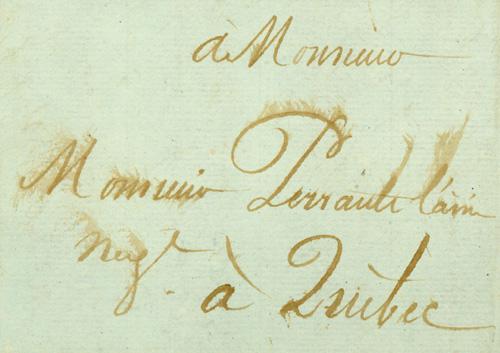 à Monsieur
Monsieur Perrault l'ainé
Negt
à Québec